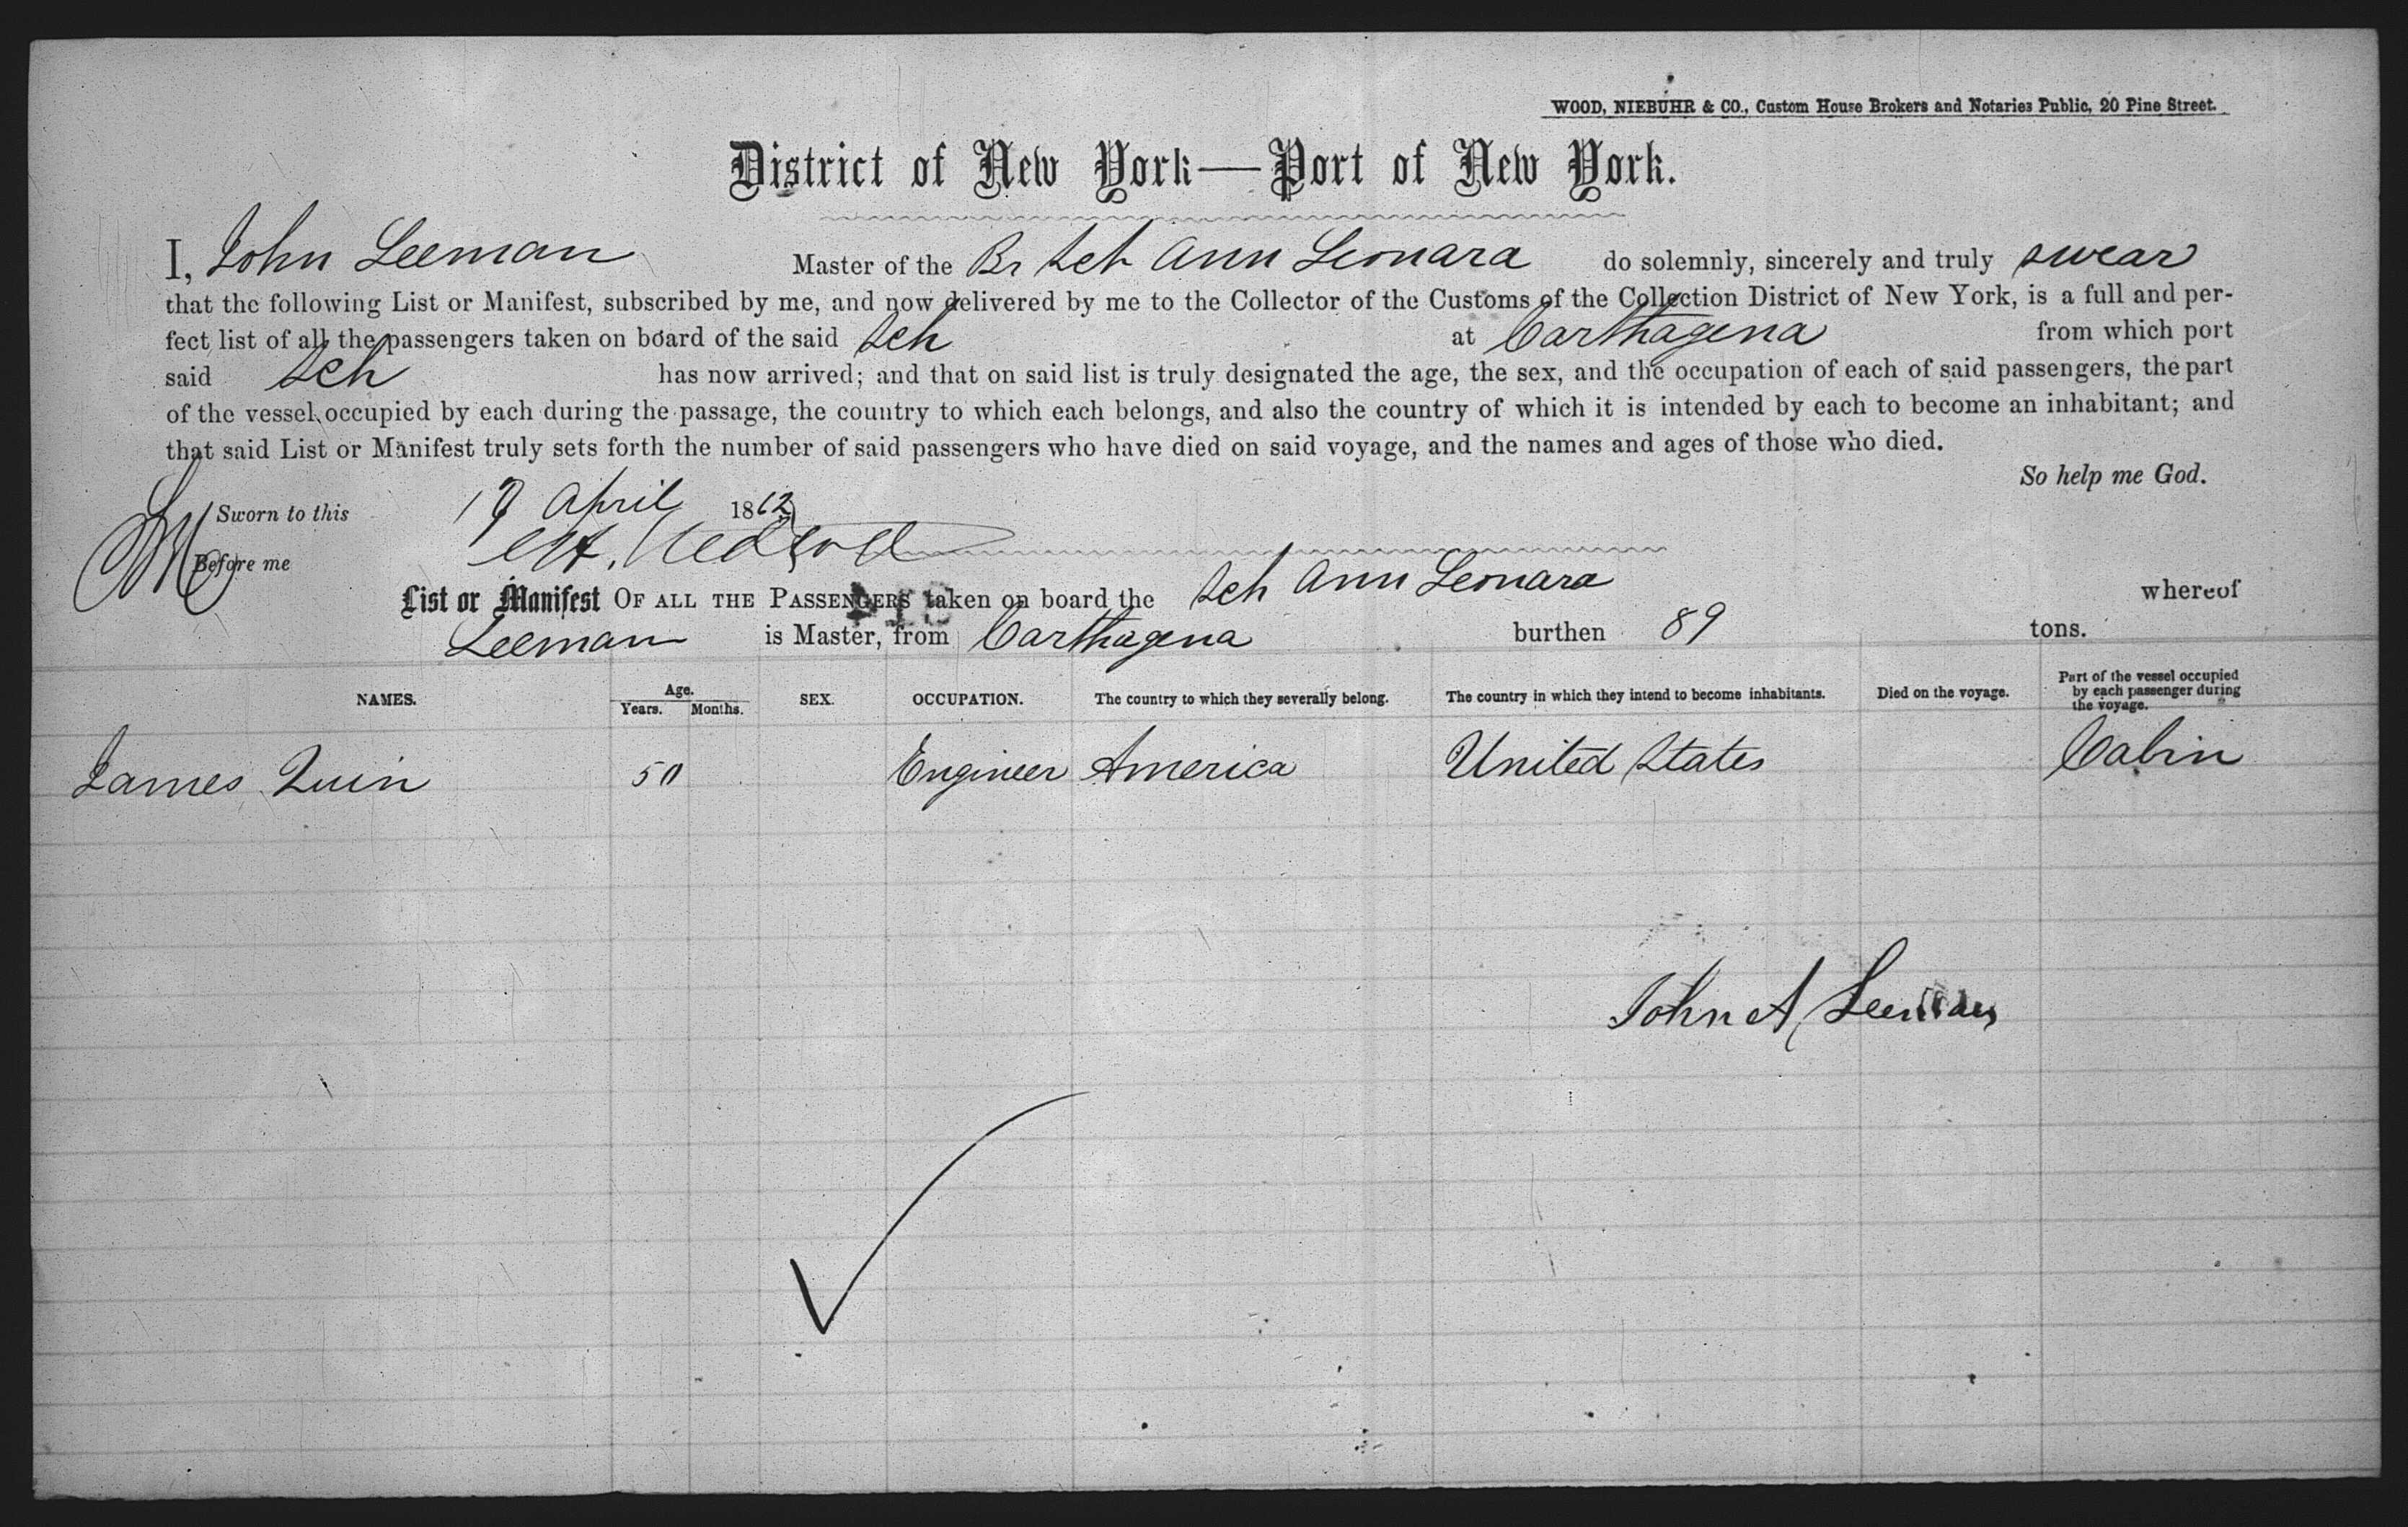 WOOD, NIEBUHR & CO., Custom House Brokers and Notaries Public, 20 Pine Street.
District of New York—Port of New York.
I, John Leeman Master of the Br Sch Ann Leonara do solemnly, sincerely and truly swear
that the following List or Manifest, subscribed by me, and now delivered by me to the Collector of the Customs of the Collection District of New York, is a full and per-
fect list of all the passengers taken on board of the said Sch at Carthagena from which port
said Sch has now arrived; and that on said list is truly designated the age, the sex, and the occupation of each of said passengers, the part
of the vessel occupied by each during the passage, the country to which each belongs, and also the country of which it is intended by each to become an inhabitant; and
that said List or Manifest truly sets forth the number of said passengers who have died on said voyage, and the names and ages of those who died.
So help me God.
Sworn to this April 1862
Before me
List or Manifest OF ALL THE PASSENGERS taken on board the Sch Ann Leonara whereof
Leeman is Master, from Carthagena burthen 89 tons.
NAMES. Age. Years. Months. SEX. OCCUPATION. The country to which they severally belong. The country in which they intend to become inhabitants. Died on the voyage. Part of the vessel occupied by each passenger during the voyage.
James Quin 50 Engineer America United States Cabin
John A Leeman